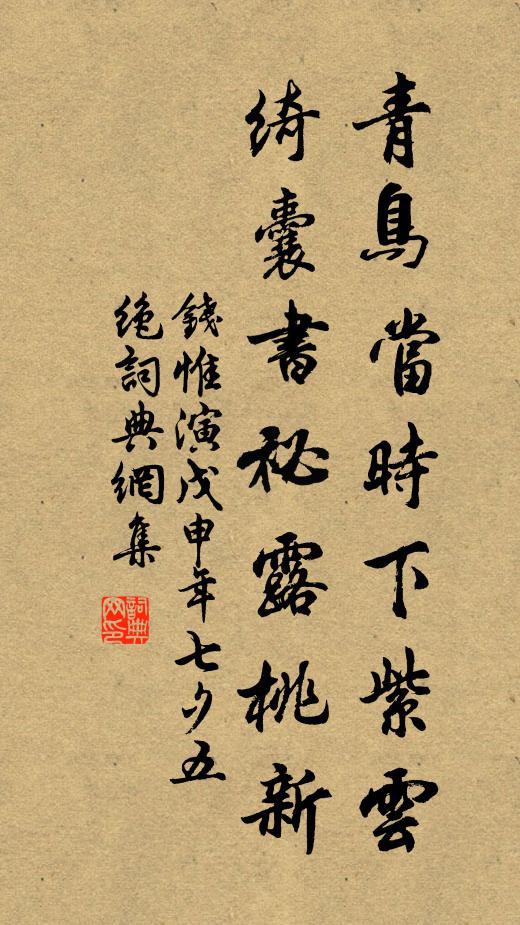 青鳥當時下紫雲
綺囊書秘露桃新
錢惟演戊申年七夕五
絶詞典網集
詞典
网印